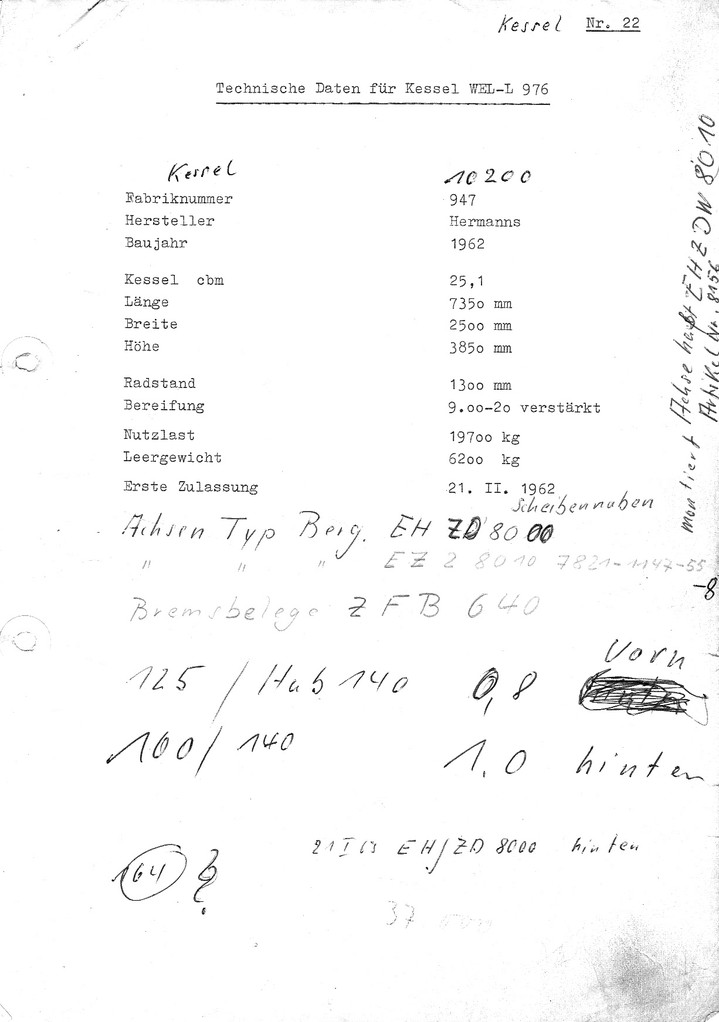 Kessel Nr. 22
Technische Daten für Kessel WEL-L 976
Kessel 10200
Fabriknummer 947
Hersteller Hermanns
Baujahr 1962
Kessel cbm 25,1
Länge 735o mm
Breite 25oo mm
Höhe 385o mm
Radstand 13oo mm
Bereifung 9.oo-2o verstärkt
Nutzlast 197oo kg
Leergewicht 62oo kg
Erste Zulassung 21. II. 1962
Scheibennaben
Achsen Typ Berg. EH ZD 8000
" " " EZ 2 8010 7821-1147-55
-8
Bremsbelege ZFB 640
125 / Hub 140 0,8 Vorn
100/ 140 1.0 hinten
21 I 63 EH/ZD 8000 hinten
164 ?
37
montiert Achse EHZDW 8010
Artikel Nr. 8156